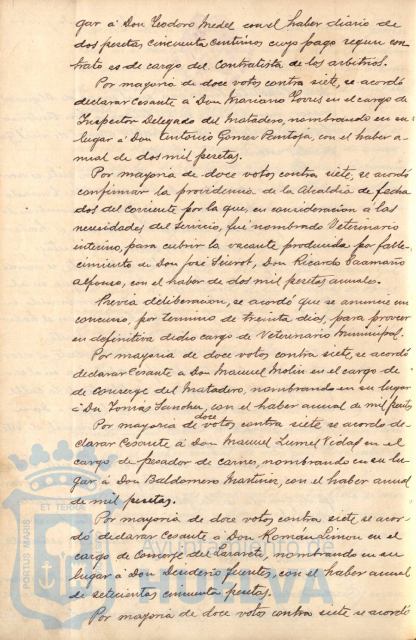 gar á Don Teodoro Medel con el haber diario de
dos pesetas cincuenta centimos cuyo pago segun con
trato es de cargo del Contratista de los arbitrios.
Por mayoria de doce votos contra siete, se acordó
declarar Cesante á Don Mariano Torres en el cargo de
Inspector Delegado del Matadero, nombrando en su
lugar á Don Antonio Gomez Pantoja, con el haber a-
nual de dos mil pesetas.
Por mayoria de doce votos contra siete, se acordó
confirmar la providencia de la Alcaldia de fecha
dos del corriente por la que, en consideracion á las
necesidades del servicio, fué nombrado Veterinario
interino, para cubrir la vacante producida por falle-
cimiento de Don José Siurot, Don Ricardo Vaamaño
Alfonso, con el haber de dos mil pesetas anuales.
Previa deliberacion, se acordó que se anuncie un
concurso, por termino de treinta dias, para proveer
en definitiva dicho cargo de Veterinario Municipal.
Por mayoria de doce votos contra siete, se acordó
declarar Cesante á Don Manuel Molin en el cargo de
de Conserge del Matadero, nombrando en su lugar
á Don Tomás Sanchez, con el haber anual de mil pesetas
Por mayoria de doce votos contra siete se acordo de-
clarar Cesante á Don Manuel Vidal en el
cargo de pesador de carnes, nombrando en su lu-
gar, á Don Baldomero Martinez, con el haber anual
de mil pesetas.
Por mayoria de doce votos contra siete se acor-
dó declarar Cesante á Don Roman Limon en el
cargo de Conserge del Lazareto, nombrando en su
lugar á Don Desiderio Fuentes, con el haber anual
de setecientas cincuenta pesetas.
Por mayoria de doce votos contra siete se acordó
PORTUS MARIS ET TERRAE
Ayuntamiento de
HUELVA